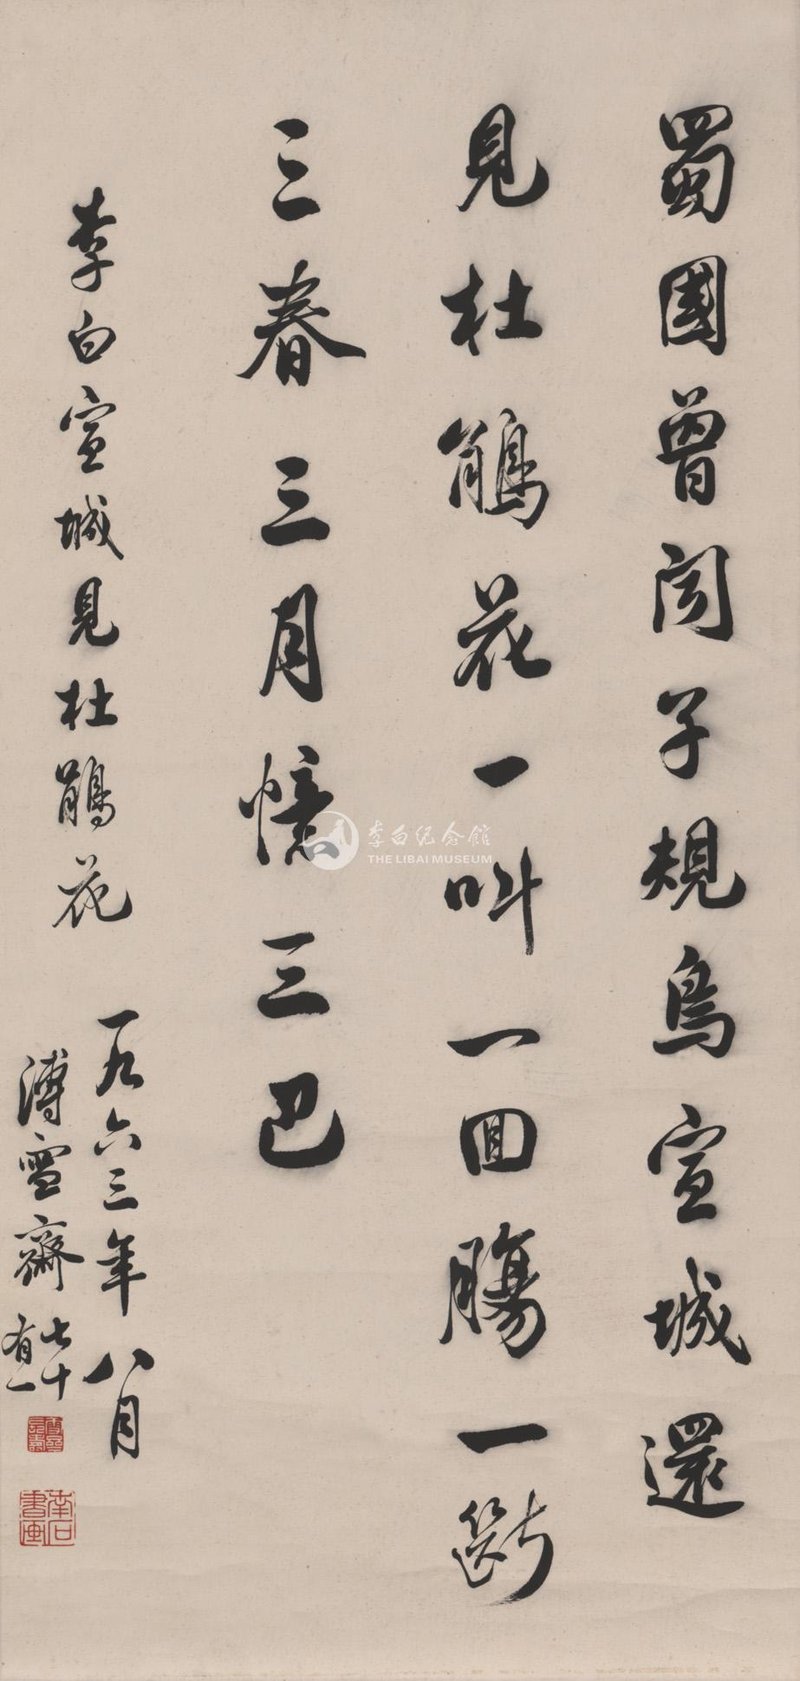 蜀國曾闻子規鳥宣城還
見杜鵑花一叫一回腸一斷
三春三月憶三巴
李白宣城見杜鵑花
一九六三年八月
溥雪齋
七十有一
南石書画
李白纪念館
THE LIBAI MUSEUM